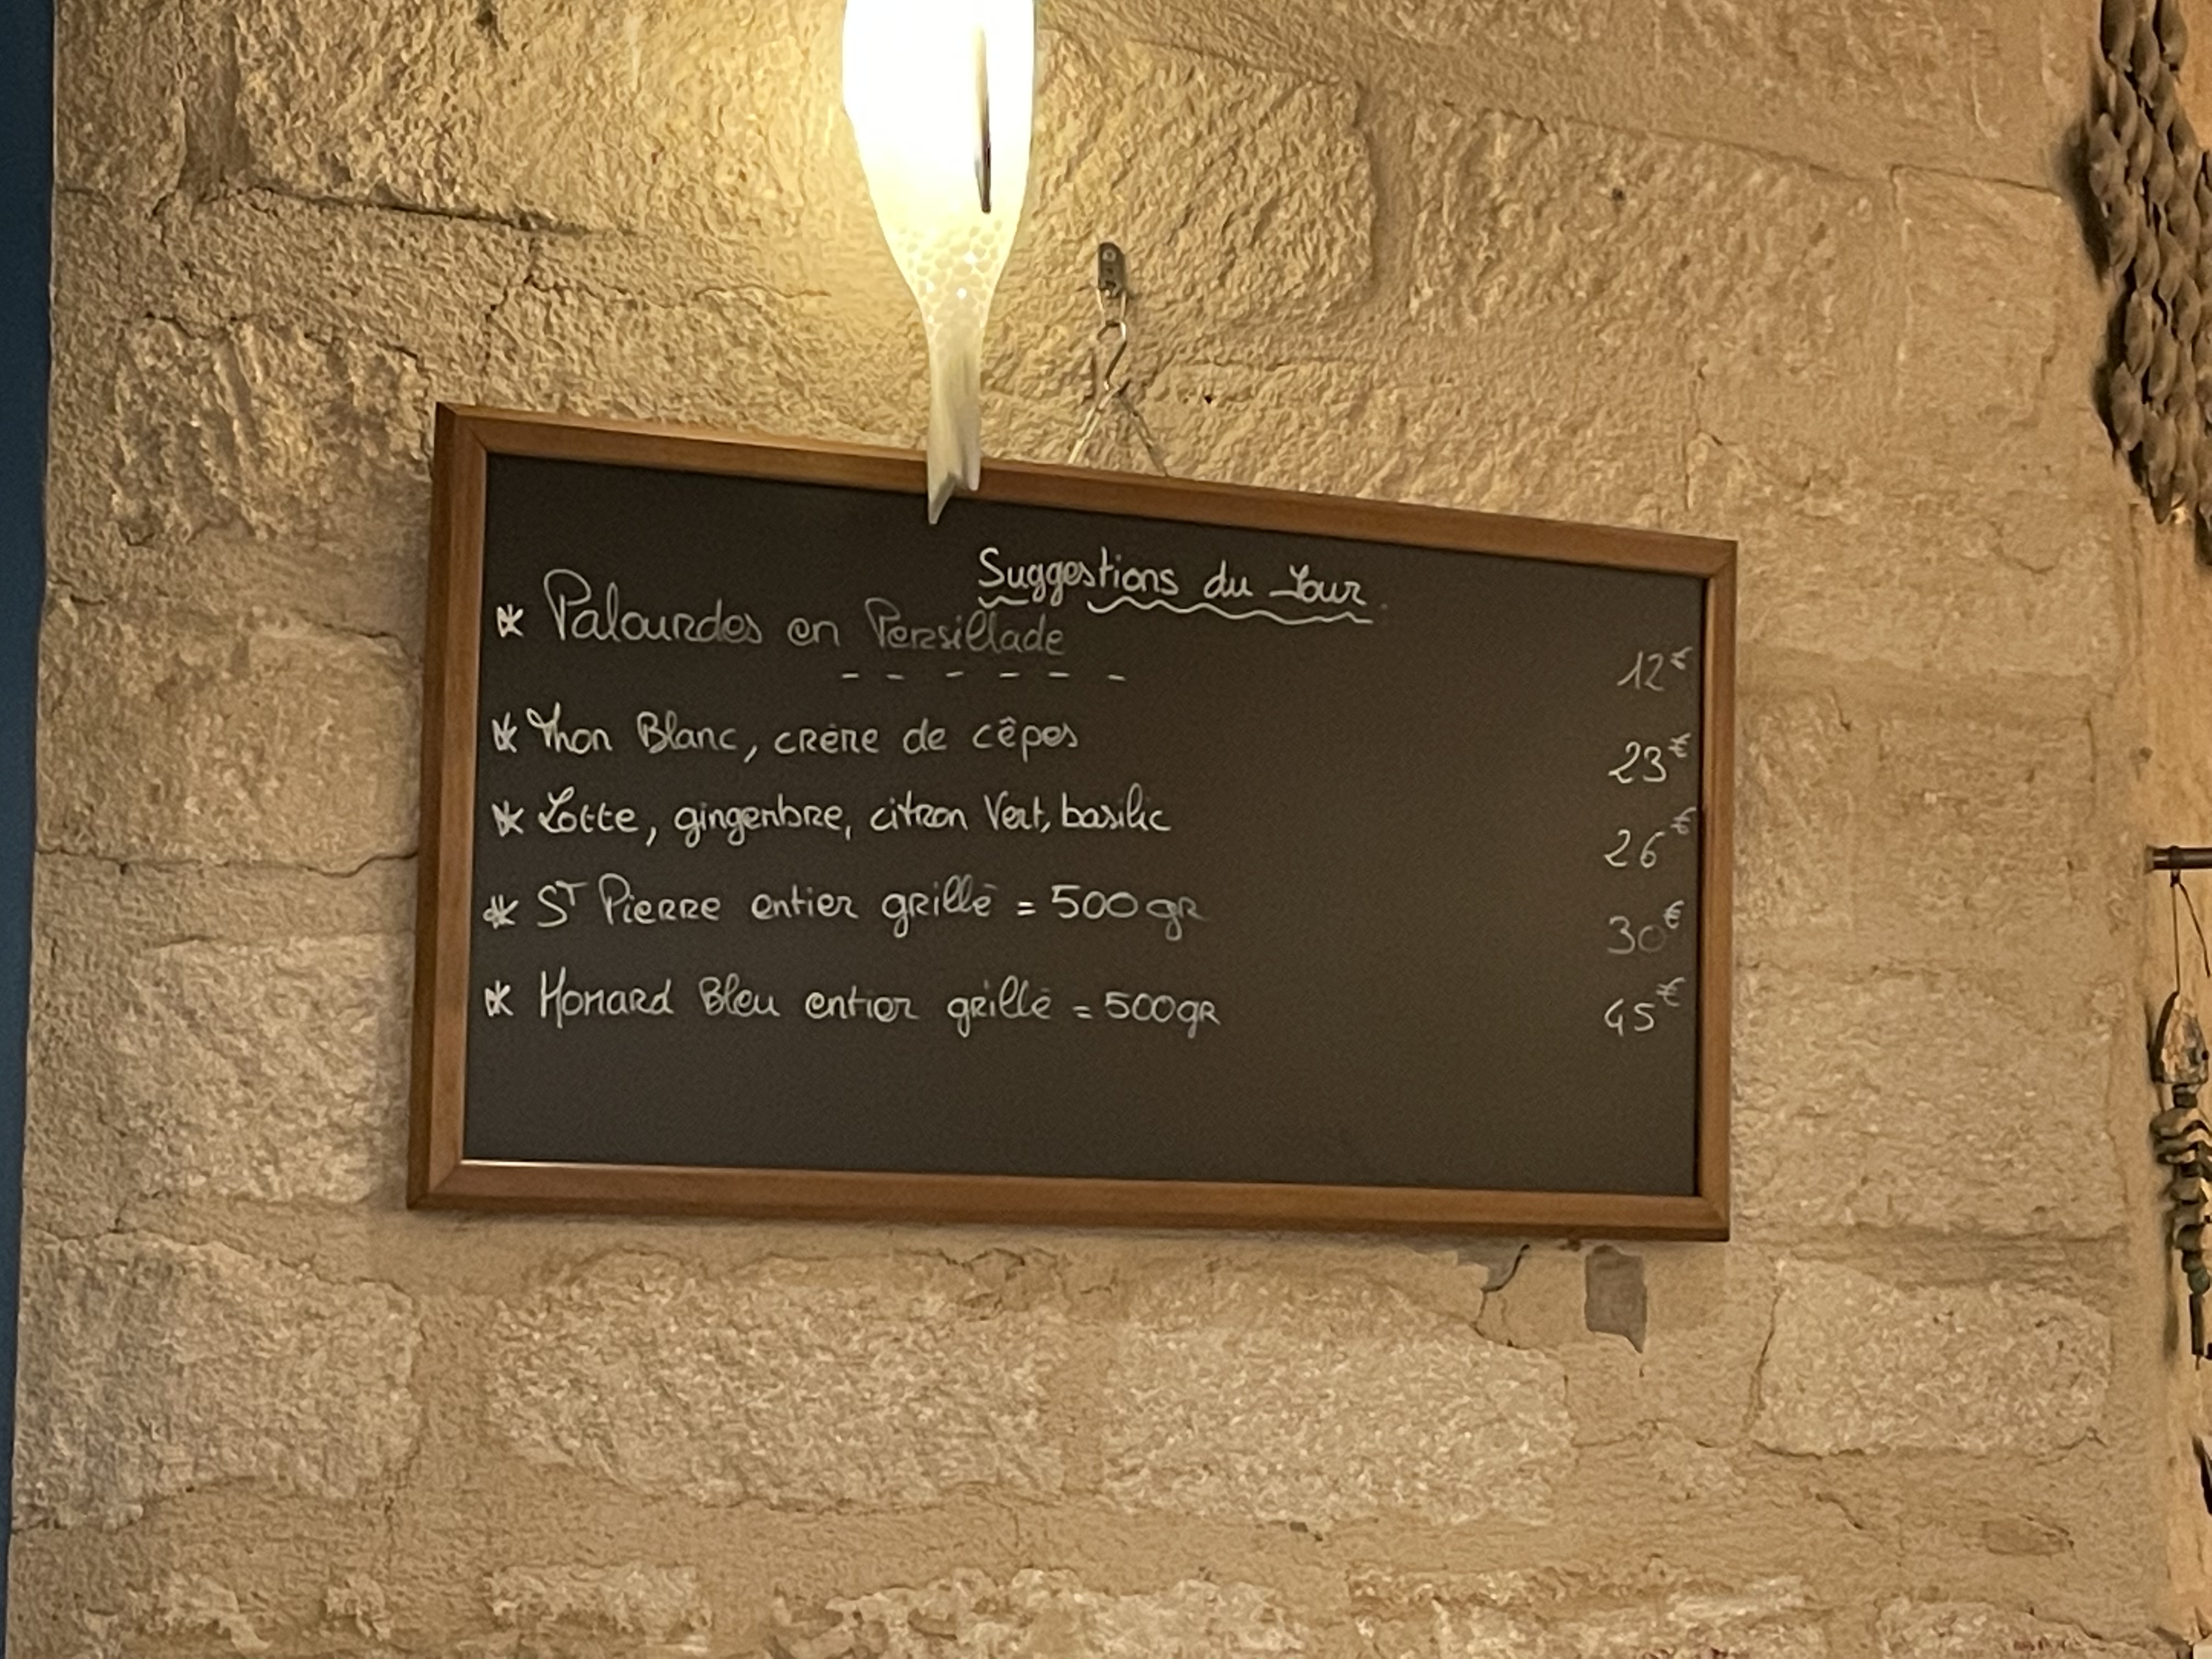 Suggestions du Jour
* Palourdes en Persillade 12€
* Thon Blanc, crème de cêpes 23€
* Lotte, gingembre, citron Vert, basilic 26€
* St Pierre entier grillé = 500 gr 30€
* Homard Bleu entier grillé = 500gr 45€